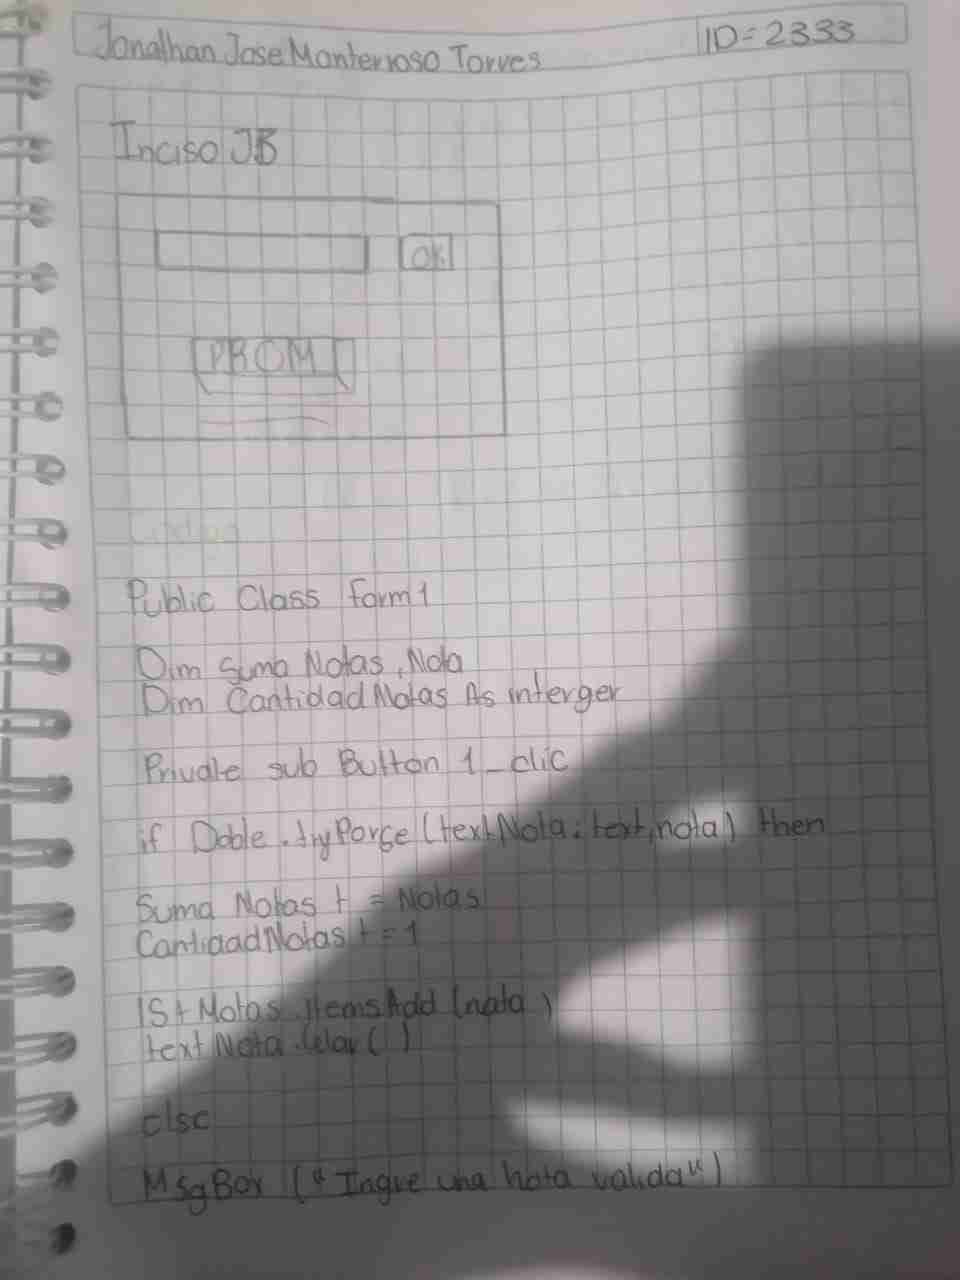 Jonathan Jose Monterroso Torres
ID=2333
Inciso JB
OK
PROM
Codigo
Public Class form1
Dim Suma Notas, Nota
Dim CantidadNotas As interger
Private sub Button 1_clic
if Doble.tryParse(textNota:text,nota) then
Suma Notas + = Notas
CantidadNotas + = 1
lSt Notas.ItemsAdd (nota)
textNota.Celar( )
else
MsgBox ("Ingre una nota valida")